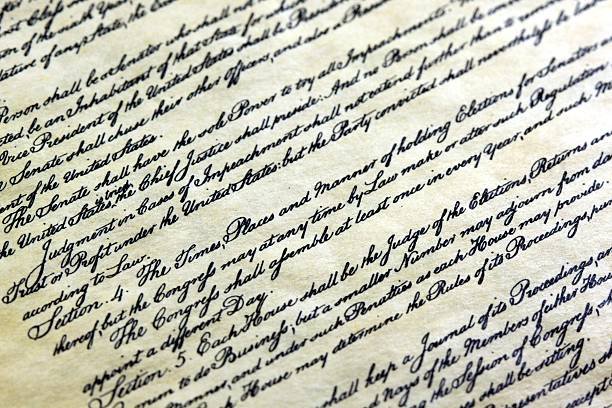 on of the ninth Year,
lature of any State, the
Person shall be a Senator who shall not
ted be an Inhabitant of that State for
Vice President of the United States shall be President
e Senate shall chuse their other Officers, and also a
ent of the United States.
The Senate shall have the sole Power to try all Impeachments.
he United States, the Chief Justice shall preside: And no Person shall be
Judgment in Cases of Impeachment shall not extend further than to
Trust or Profit under the United States: but the Party convicted shall nevertheless be
according to Law.
Section. 4. The Times, Places and Manner of holding Elections for Senators
thereof; but the Congress may at any time by Law make or alter such Regulation
The Congress shall assemble at least once in every Year, and such
appoint a different Day.
Section. 5. Each House shall be the Judge of the Elections, Returns
orum to do Business; but a smaller Number may adjourn from
Manner, and under such Penalties as each House may provide
ch House may determine the Rules of its Proceedings,
shall keep a Journal of its Proceedings
nd Nays of the Members of either
the Session of Congress,
es shall be sitting.
resentatives
except